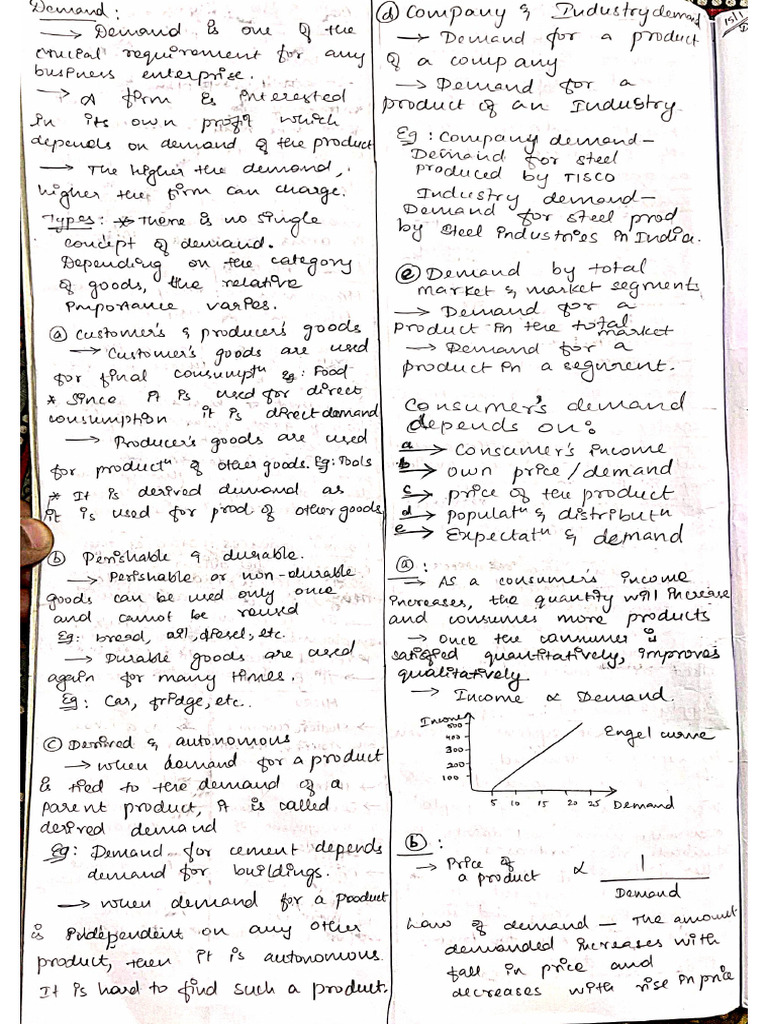 Demand:
→ Demand is one of the
crucial requirement for any
business enterprise.
→ A firm is interested
in its own profit which
depends on demand of the product
→ The higher the demand,
higher the firm can charge.
Types: * There is no single
concept of demand.
Depending on the category
of goods, the relative
importance varies.
(a) Customer's & producer's goods
→ Customer's goods are used
for final consumptn Eg: Food
* Since it is used for direct
consumption it is direct demand
→ Producer's goods are used
for productn of other goods. Eg: Tools
* It is derived demand as
it is used for prod of other goods
(b) Perishable & durable.
→ Perishable or non-durable
goods can be used only once
and cannot be reused
Eg: bread, oil, diesel, etc.
→ Durable goods are used
again for many times.
Eg: Car, fridge, etc.
(c) Derived & autonomous
→ when demand for a product
is tied to the demand of a
parent product, it is called
derived demand
Eg: Demand for cement depends
demand for buildings.
→ when demand for a product
is independent on any other
product, then it is autonomous
It is hard to find such a product.
(d) Company & Industry demand
→ Demand for a product
of a company
→ Demand for a
product of an Industry
Eg: Company demand–
Demand for steel
produced by TISCO
Industry demand–
Demand for steel prod
by steel industries in India.
(e) Demand by total
market & market segments
→ Demand for a
product in the total
market
→ Demand for a
product in a segment.
Consumer's demand
depends on:
a → Consumer's income
b → own price/demand
c → price of the product
d → Populatn & distributn
e → Expectatn & demand
(a):
→ As a consumer's income
increases, the quantity will increase
and consumes more products
→ once the consumer is
satisfied quantitatively, improves
qualitatively
→ Income ∝ Demand.
Income
500
400
300
200
100
Engel curve
5 10 15 20 25 Demand
(b):
→ Price of
a product ∝ 1
Demand
Law of demand – The amount
demanded increases with
fall in price and
decreases with rise in price